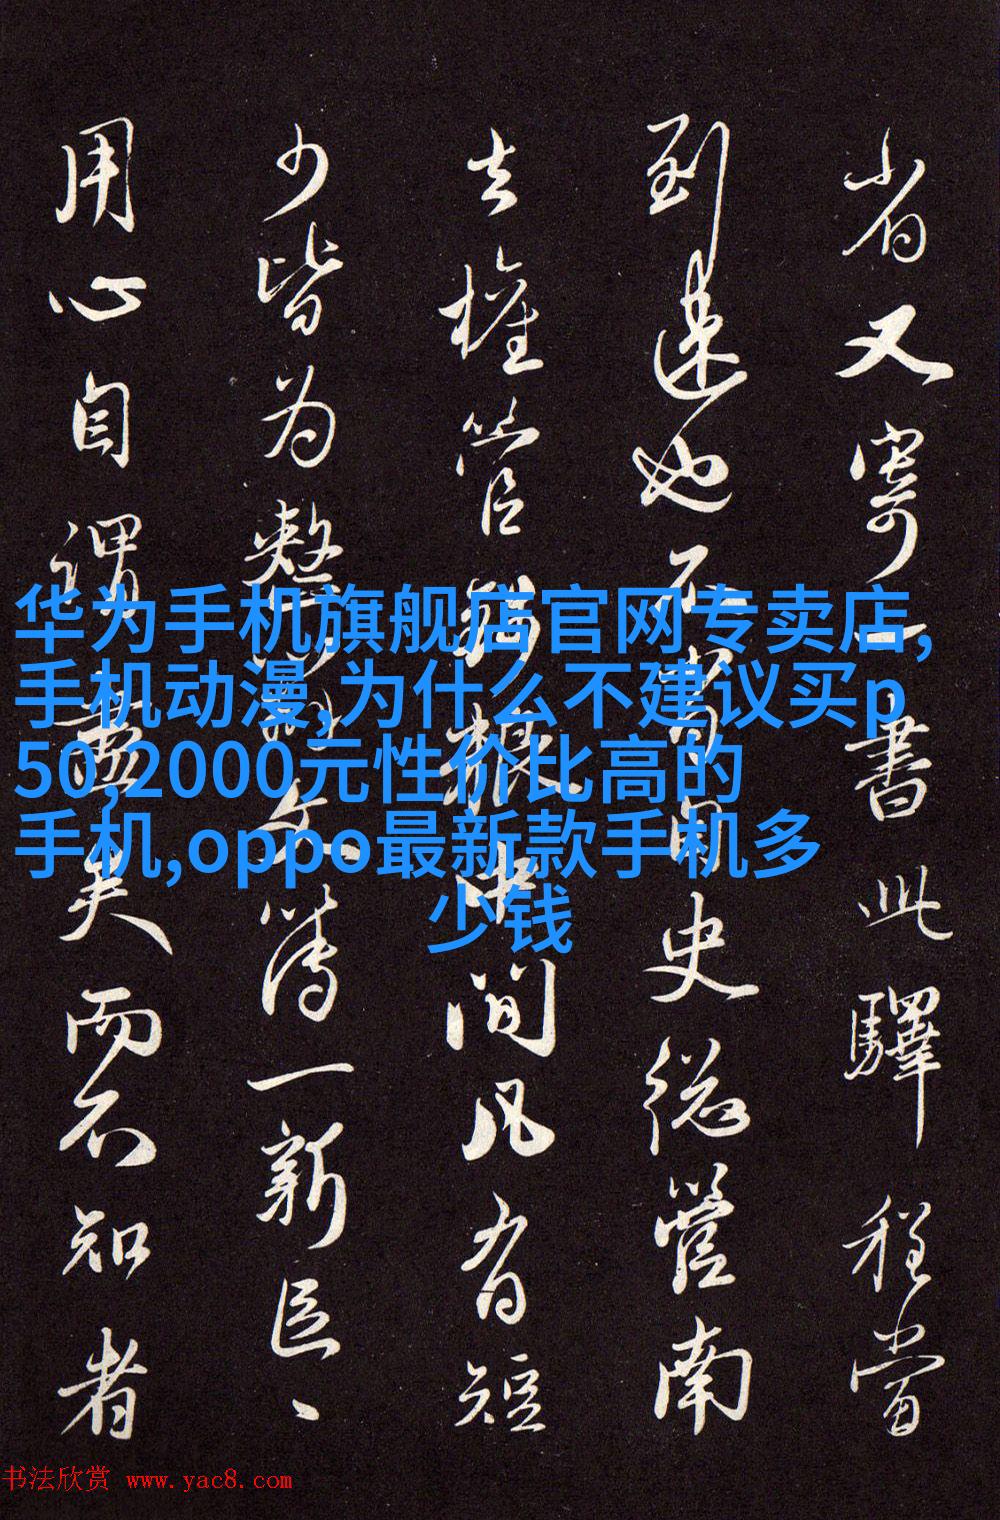 省又寄一書此驛程當
到遠也不
史從管南
去權管
中間凡有短
少皆为整
文簿一新臣、
用心自謂
盡矣而不知者
华为手机旗舰店官网专卖店,
手机动漫,为什么不建议买p
50,2000元性价比高的
手机,oppo最新款手机多
少钱
书法欣赏 www.yac8.com